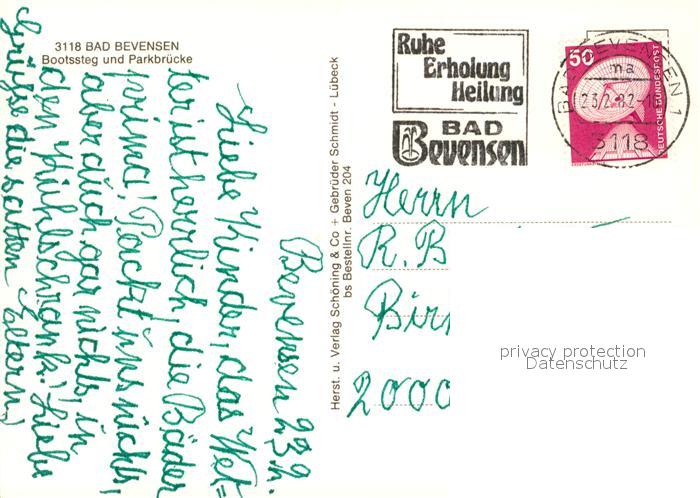 3118 BAD BEVENSEN
Bootssteg und Parkbrücke
Bevensen 23.2.
Liebe Kinder, das Wet=
ter ist herrlich, die Bäder
prima! Packt uns nichts,
aber auch gar nichts, in
den Kühlschrank! Liebe
Grüße die satten Eltern,
Herst. u. Verlag Schöning & Co + Gebrüder Schmidt - Lübeck
bs Bestellnr. Beven 204
Ruhe
Erholung
Heilung
BAD
Bevensen
50
DEUTSCHE BUNDESPOST
BAD BEVENSEN 1
ma
23.2.82-16
3118
Herrn
R. B
Bir
2000
privacy protection
Datenschutz